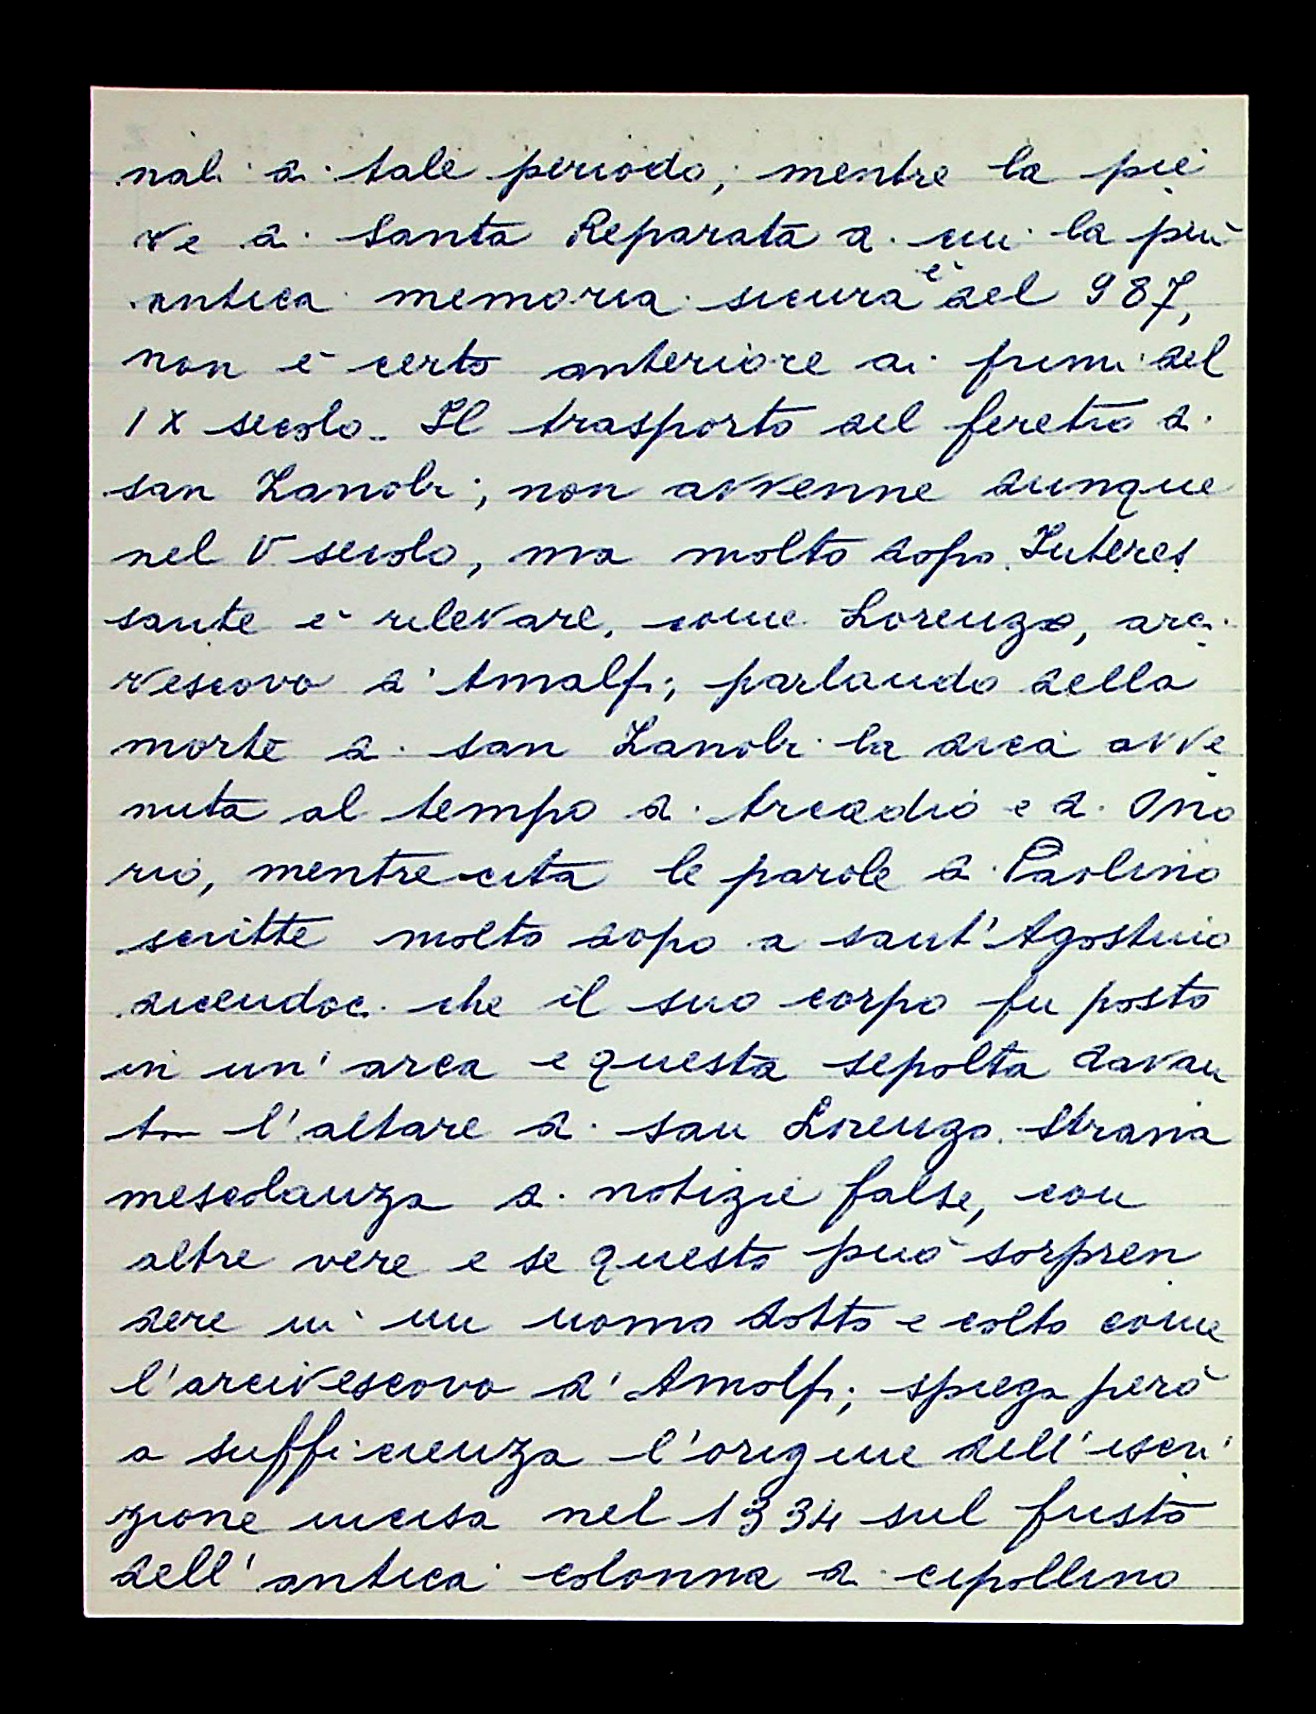 nali di tale periodo, mentre la pie
ve di Santa Reparata di cui la più
antica memoria sicura è del 987,
non è certo anteriore ai primi del
IX secolo. Il trasporto del feretro di
san Zanobi, non avvenne dunque
nel V secolo, ma molto dopo. Interes
sante è rilevare, come Lorenzo, arci
vescovo d'Amalfi, parlando della
morte di san Zanobi la dica avve
nuta al tempo di Arcadio e di Ono
rio, mentre cita le parole di Paolino
scritte molto dopo a sant'Agostino
dicendoci che il suo corpo fu posto
in un'arca e questa sepolta davan
ti l'altare di san Lorenzo. Strana
mescolanza di notizie false, con
altre vere e se questo può sorpren
dere in un uomo dotto e colto come
l'arcivescovo d'Amalfi, spiega però
a sufficienza l'origine dell'iscri
zione incisa nel 1334 sul fusto
dell'antica colonna di cipollino